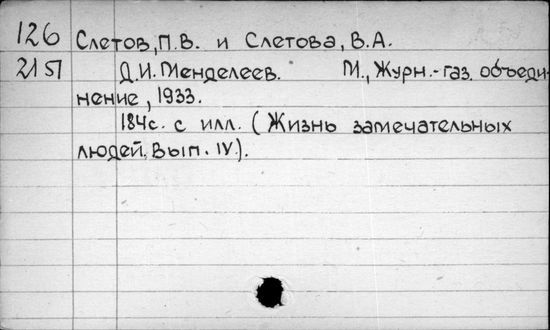 126 Слетов, П.В. и Слетова, В.А.
2151 Д.И. Менделеев. М., Журн.-газ. объеди-
нение, 1933.
184с. с илл. (Жизнь замечательных
людей. Вып. IV).